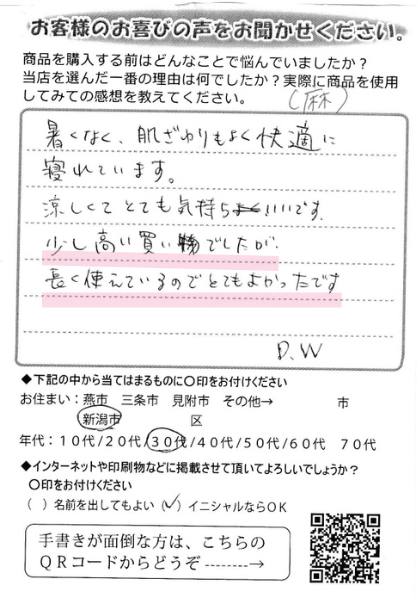 お客様のお喜びの声をお聞かせください。
商品を購入する前はどんなことで悩んでいましたか？
当店を選んだ一番の理由は何でしたか？実際に商品を使用
してみての感想を教えてください。
（麻）
暑くなく、肌ざわりもよく快適に
寝れています。
涼しくてとても気持ちいいです。
少し高い買い物でしたが
長く使えているのでとてもよかったです
D.W
◆下記の中から当てはまるものに〇印をお付けください
お住まい：燕市 三条市 見附市 その他→ 市
新潟市 区
年代：１０代/２０代/３０代/４０代/５０代/６０代 ７０代
◆インターネットや印刷物などに掲載させて頂いてよろしいでしょうか？
〇印をお付けください
（ ）名前を出してもよい（✓）イニシャルならＯＫ
手書きが面倒な方は、こちらの
ＱＲコードからどうぞ --------→